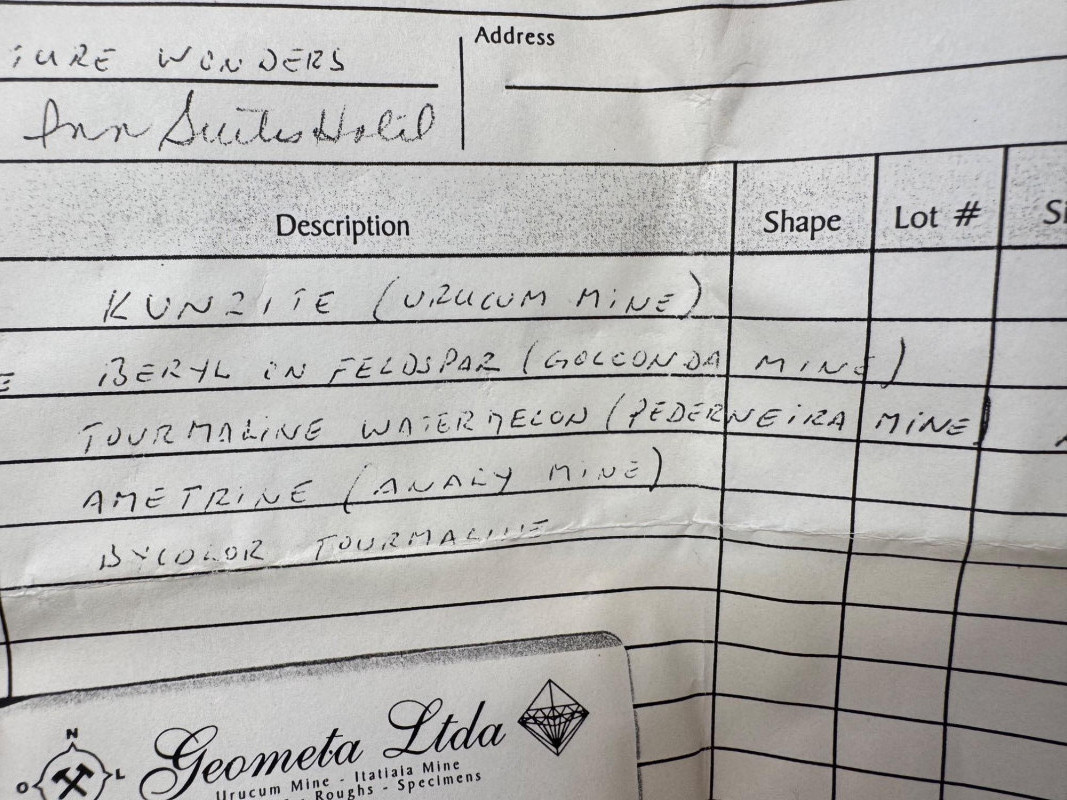 Address
WONDERS
Inn Suites Hotel
Description Shape Lot #
KUNZITE (URUCUM MINE)
BERYL ON FELDSPAR (GOLCONDA MINE)
TOURMALINE WATERMELON (PEDERNEIRA MINE)
AMETRINE (ANAHY MINE)
BYCOLOR TOURMALINE
N
O L
Geometa Ltda
Urucum Mine - Itatiaia Mine
Roughs - Specimens